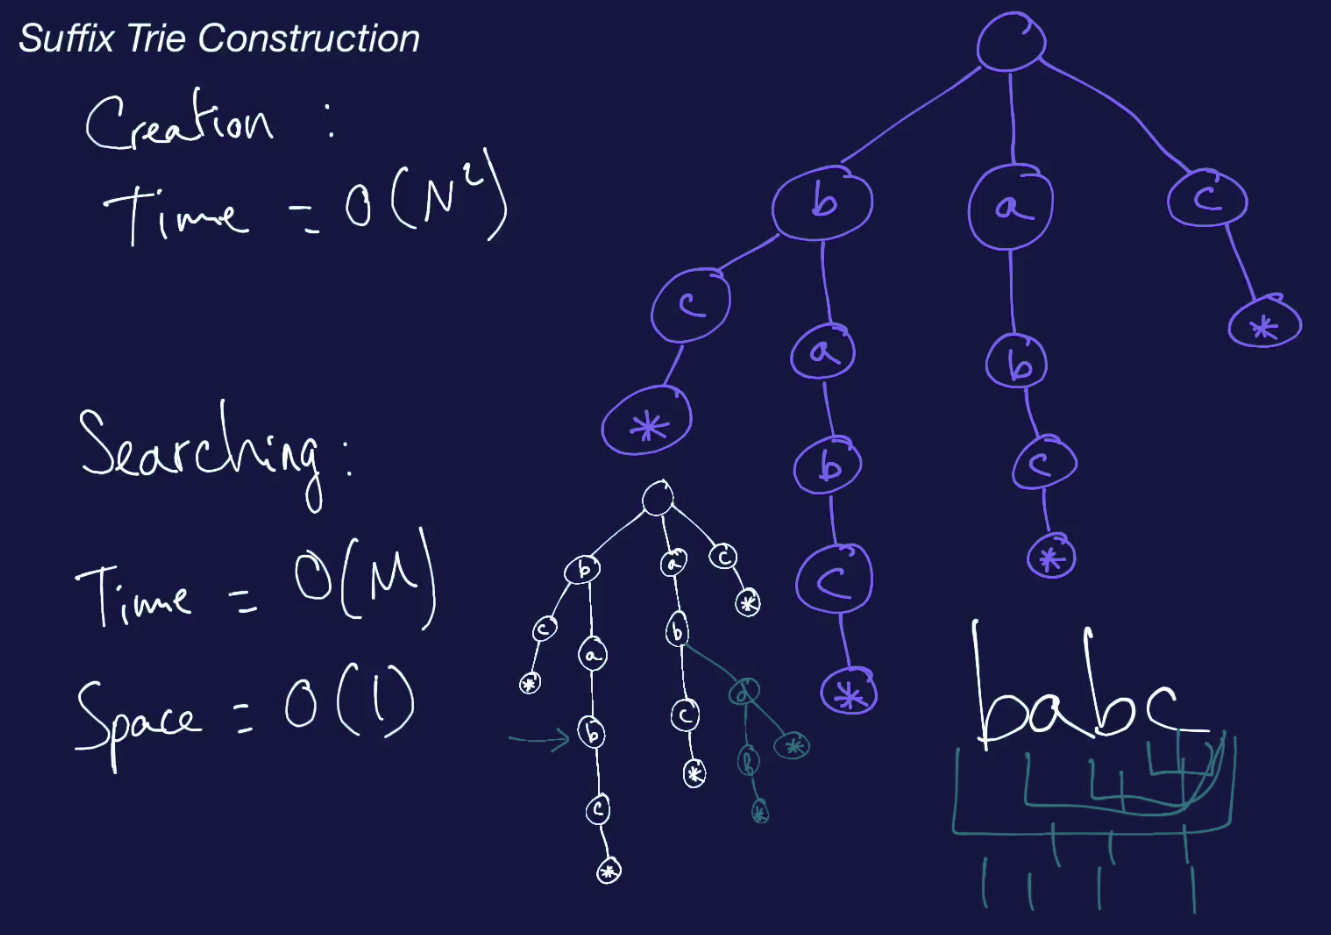 Suffix Trie Construction
Creation :
Time = O(N²)
Searching :
Time = O(M)
Space = O(1)
b a c
c a b *
* b c
c *
*
b a c
c a b *
* b c d
c * b *
* *
babc